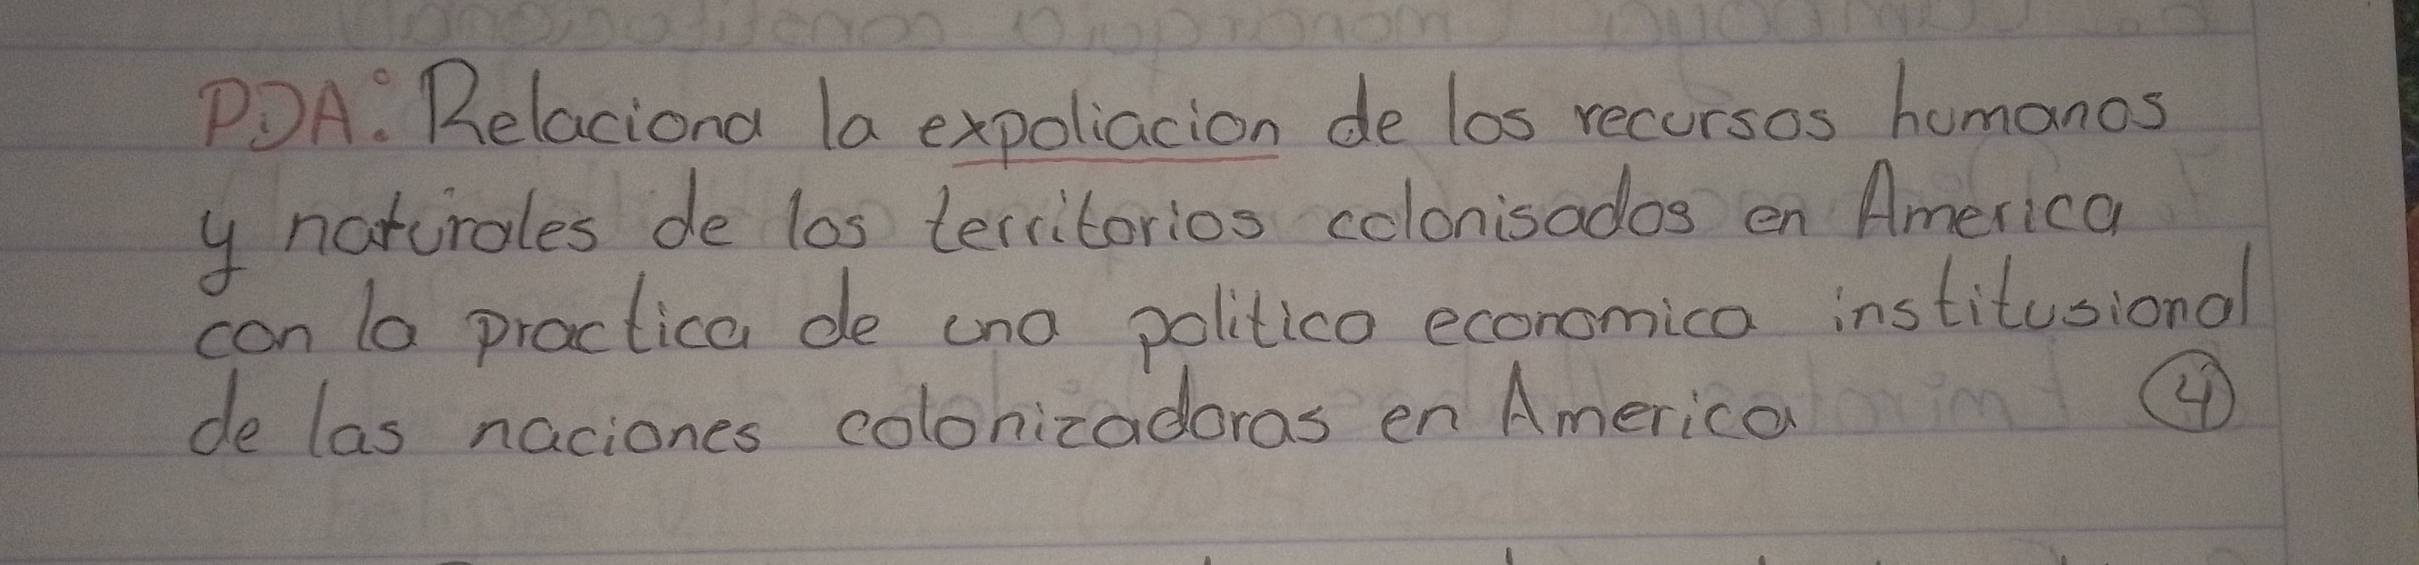 PDA: Relaciona la expoliacion de los recursos humanos
y naturales de los territorios colonisados en America
con la practica de una politica economica institusional
de las naciones colonizadoras en America 4